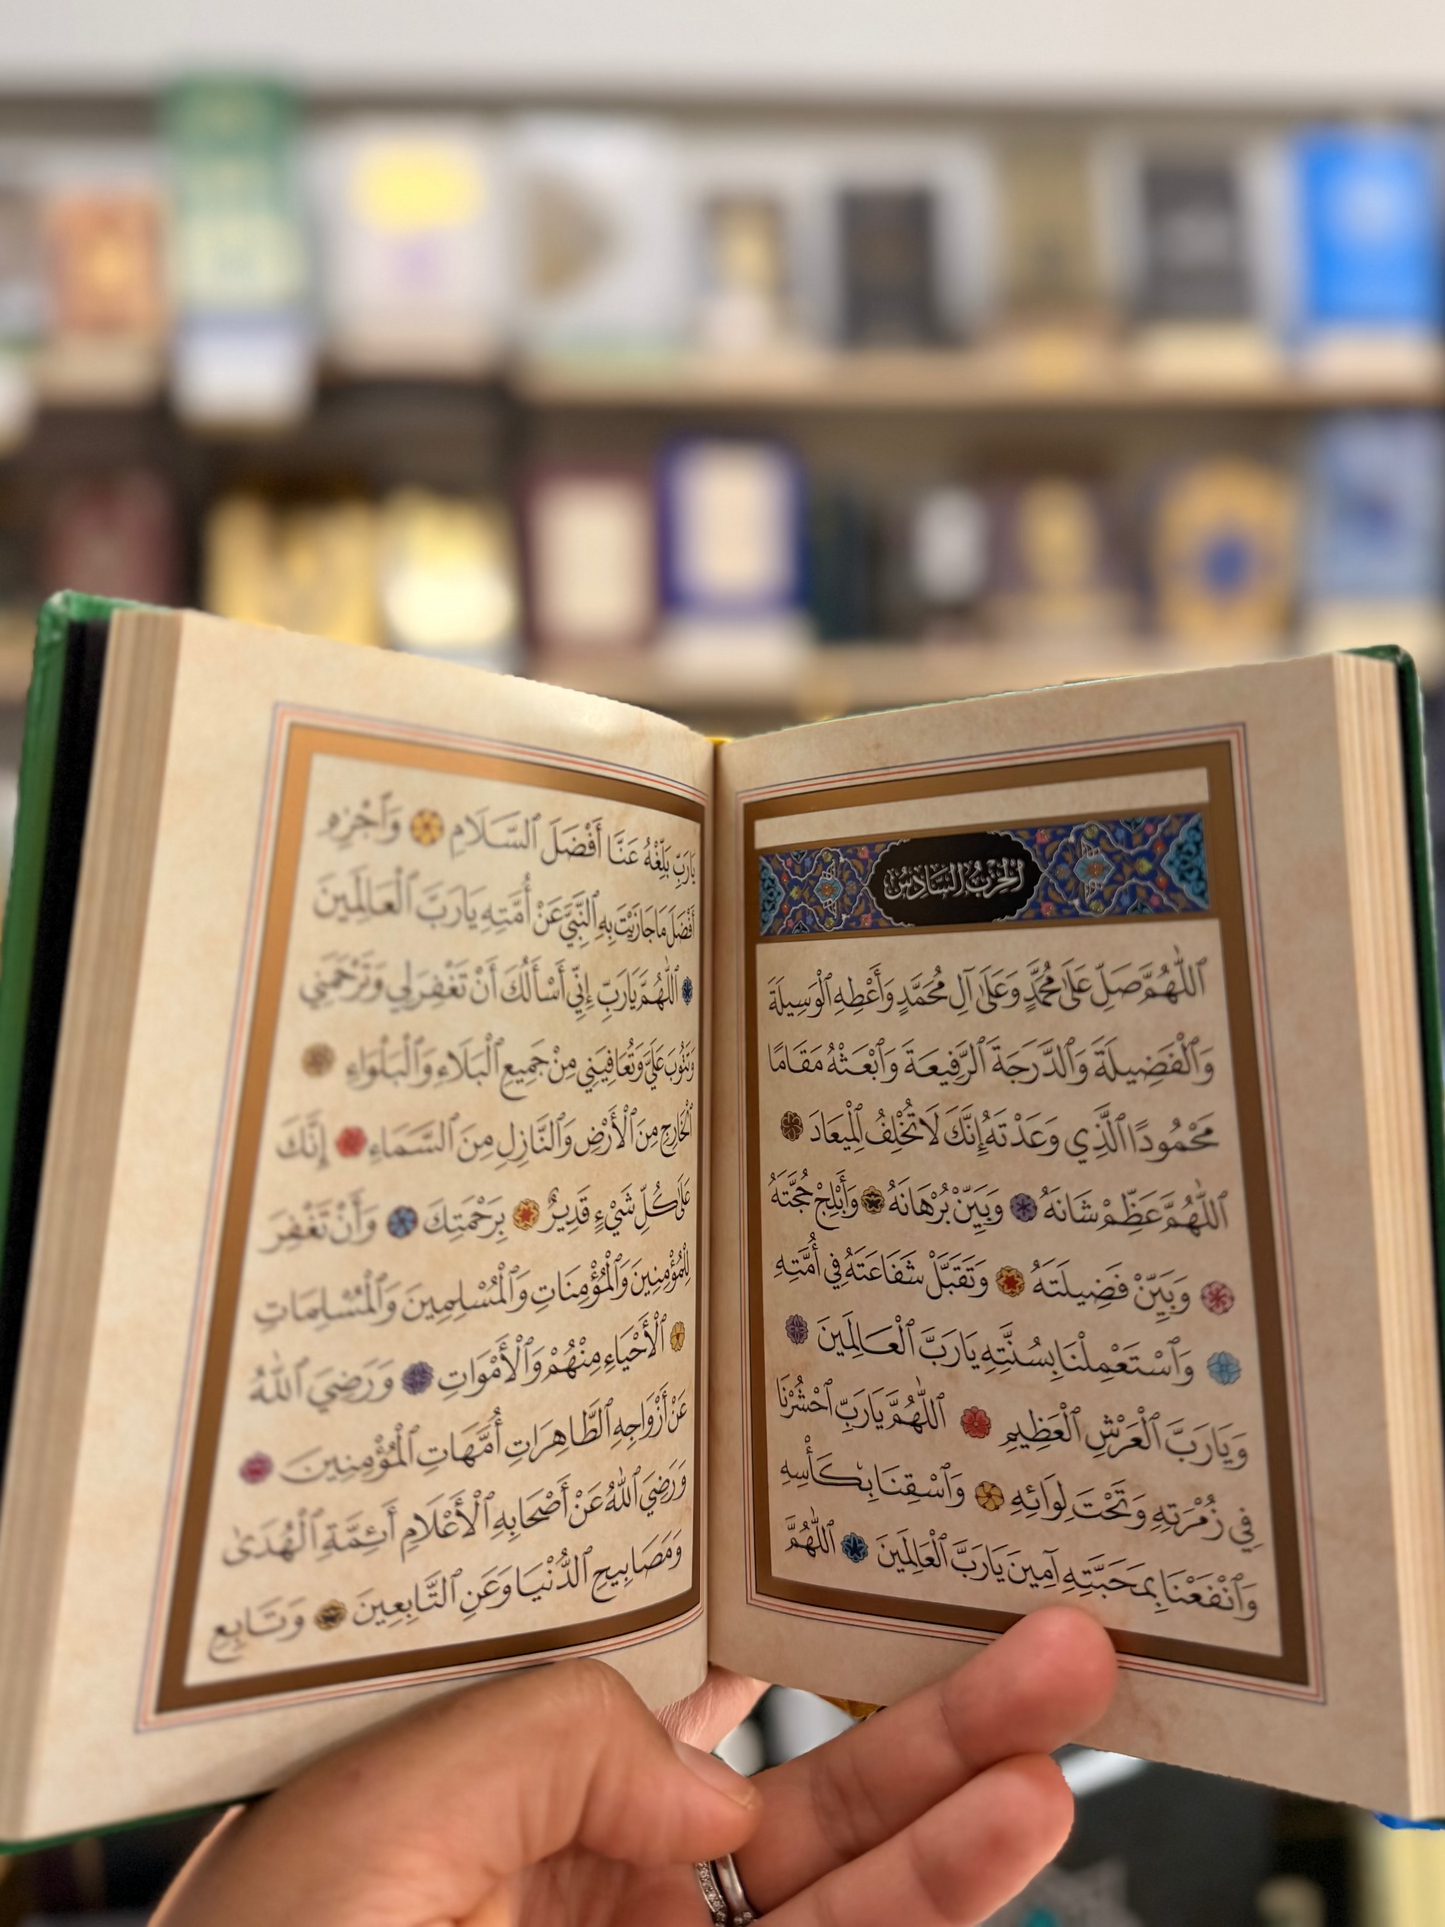 اَلْحِزْبُ السَّادِسُ
اَللّٰهُمَّ صَلِّ عَلَى مُحَمَّدٍ وَعَلَى آلِ مُحَمَّدٍ وَأَعْطِهِ الْوَسِيلَةَ
وَالْفَضِيلَةَ وَالدَّرَجَةَ الرَّفِيعَةَ وَابْعَثْهُ مَقَامًا
مَحْمُودًا الَّذِي وَعَدْتَهُ إِنَّكَ لَا تُخْلِفُ الْمِيعَادَ
اَللّٰهُمَّ عَظِّمْ شَانَهُ وَبَيِّنْ بُرْهَانَهُ وَأَبْلِجْ حُجَّتَهُ
وَبَيِّنْ فَضِيلَتَهُ وَتَقَبَّلْ شَفَاعَتَهُ فِي أُمَّتِهِ
وَاسْتَعْمِلْنَا بِسُنَّتِهِ يَارَبَّ الْعَالَمِينَ
وَيَارَبَّ الْعَرْشِ الْعَظِيمِ اَللّٰهُمَّ يَارَبِّ احْشُرْنَا
فِي زُمْرَتِهِ وَتَحْتَ لِوَائِهِ وَاسْقِنَا بِكَأْسِهِ
وَانْفَعْنَا بِمَحَبَّتِهِ آمِينَ يَارَبَّ الْعَالَمِينَ اَللّٰهُمَّ
يَارَبِّ بَلِّغْهُ عَنَّا أَفْضَلَ السَّلَامِ وَاجْزِهِ
أَفْضَلَ مَا جَازَيْتَ بِهِ النَّبِيَّ عَنْ أُمَّتِهِ يَارَبَّ الْعَالَمِينَ
اَللّٰهُمَّ يَارَبِّ إِنِّي أَسْأَلُكَ أَنْ تَغْفِرَ لِي وَتَرْحَمَنِي
وَتَتُوبَ عَلَيَّ وَتُعَافِيَنِي مِنْ جَمِيعِ الْبَلَاءِ وَالْبَلْوَاءِ
الْخَارِجِ مِنَ الْأَرْضِ وَالنَّازِلِ مِنَ السَّمَاءِ إِنَّكَ
عَلَى كُلِّ شَيْءٍ قَدِيرٌ بِرَحْمَتِكَ وَأَنْ تَغْفِرَ
لِلْمُؤْمِنِينَ وَالْمُؤْمِنَاتِ وَالْمُسْلِمِينَ وَالْمُسْلِمَاتِ
الْأَحْيَاءِ مِنْهُمْ وَالْأَمْوَاتِ وَرَضِيَ اللّٰهُ
عَنْ أَزْوَاجِهِ الطَّاهِرَاتِ أُمَّهَاتِ الْمُؤْمِنِينَ
وَرَضِيَ اللّٰهُ عَنْ أَصْحَابِهِ الْأَعْلَامِ أَئِمَّةِ الْهُدَىٰ
وَمَصَابِيحِ الدُّنْيَا وَعَنِ التَّابِعِينَ وَتَابِعِ